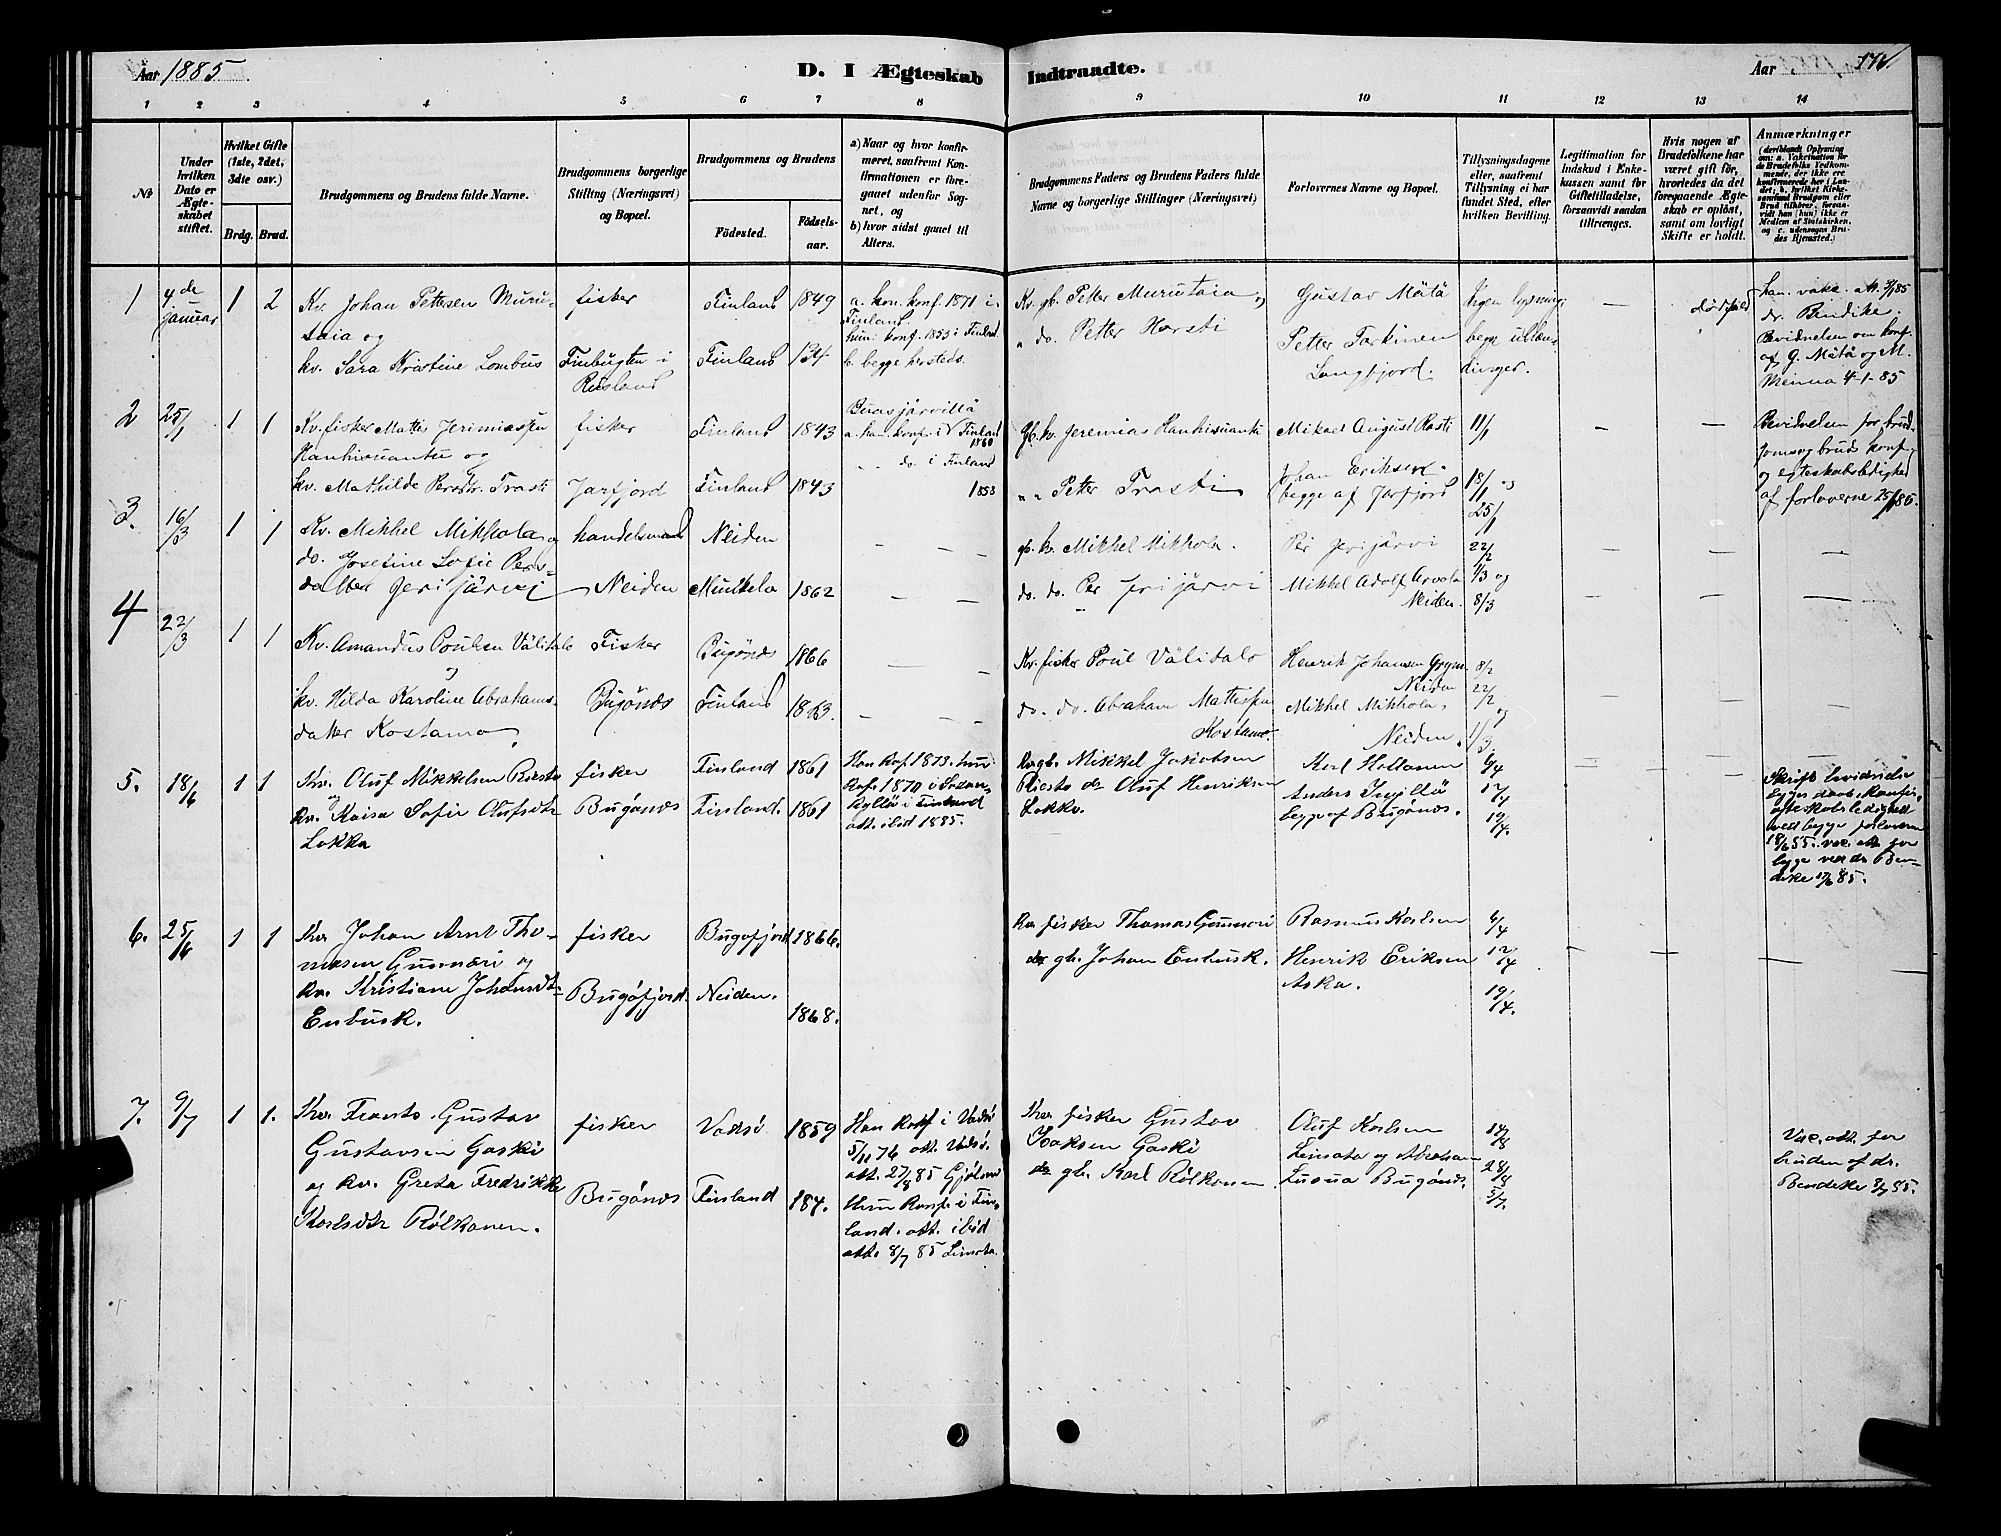 Aar 1885
D. I Ægteskab Indtraadte.
Aar
1 2 3 4 5 6 7 8 9 10 11 12 13 14
No
Under hvilken Dato er Ægteskabet stiftet.
Hvilket Gifte (1ste, 2det, 3die osv.)
Brdg. Brud.
Brudgommens og Brudens fulde Navne.
Brudgommens borgerlige Stilling (Næringsvei) og Bopæl.
Brudgommens og Brudens
Födested. Födselsaar.
a) Naar og hvor konfirmeret, saafremt Konfirmationen er foregaaet udenfor Sognet, og
b) hvor sidst gaaet til Alters.
Brudgommens Faders og Brudens Faders fulde Navne og borgerlige Stillinger (Næringsvei)
Forlovernes Navne og Bopæl.
Tillysningsdagene eller, saafremt Tillysning ei har fundet Sted, efter hvilken Bevilling.
Legitimation for Indskud i Enkekassen samt for Giftetilladelse, forsaavidt saadan tiltrænges.
Hvis nogen af Brudefolkene har været gift för, hvorledes da det foregaaende Ægteskab er oplöst, samt om lovligt Skifte er holdt.
Anmærkninger
1 4de januar 1 2
Kv. Johan Pettersen Muru-
taia og
kv. Sara Kristine Lombus
fisker
Finbugten i
Rusland
Finland 1849
Finland 134
a. han konf. 1871 i
Finland.
hun konf. 1853 i Finland
b. begge hersteds.
Kv. gb. Petter Murutaia og
" do. Petter Harsti
Gustav Mätä
Petter Tarkinen
Langfjord.
Ingen lysning;
begge udlæn-
dinger.
Dödsfald
han. vakc. att. 3/1 85
dr. Bendike.
Bevidnelsen om konf.
af G. Mätä og M.
Menna 4-1-85
2 25/1 1 1
Kv. fisker Matte Jerimiassen
Kanhisuanta og
kv. Mathilde Persdtr. Trasti
fisker
Jarfjord
Finland 1843
Finland 1843
a. han. konf. i Finland
1860
" " do. i Finland
1853
gb. kv. Jeremias Kanhisuanta
" " Petter Trasti
Mikael August Rasti
Johan Eriksen
begge af Jarfjord
11/1
18/1 og
25/1
Bevidnelsen for brud-
goms og bruds konf.
og egteskabsledighed
af forloverne 25/1 85.
3. 16/3 1 1
Kv. Mikkel Mikkola og
do. Josefine Sofie Pers-
datter Jerijärvi
handelsmand
Neiden
Neiden
Munkelv 1862
gb. kv. Mikkel Mikkola.
do. do. Per Jerijärvi
Per Jerijärvi
Mikkel Adolf Arvola
Neiden.
22/2
1/3 og
8/3
4 22/3 1 1
Kv. Amandus Poulsen Välitalo
og
kv. Hilda Karoline Abrahams-
datter Kostamo
Fisker
Bugönes
Bugönes 1866
Finland 1863.
Kv. fisker Poul Välitalo
do. do. Abraham Mattissen
Kostamo.
Henrik Johansen
Neiden
Mikkel Mikkola
Neiden.
8/2
22/2
og
1/3
5. 18/6 1 1
Kv. Oluf Mikkelsen Riesto
og
Kv. Kaisa Sofie Olufsdtr
Lokka
fisker
Bugönes
Finland 1861
Finland. 1861
Han Kof. 1873. hun
Kof. 1870 i Sodan-
kyllä i Finland
att. ibid 1885.
Kv. gb. Mikkel Jakobsen
Riesto do Oluf Henriksen
Lokka.
Karl Hottanen
Anders
begge af Bugönes.
6/4
12/4
19/4.
Skriftl. bevidnelse
begges daab, konfir.,
egteskabsledighed
ved begge forlovere
18/6 85. vac. att. for
begge ved dr. Ben-
deke 17/6 85.
6. 25/6 1 1
Kv. Johan Arnt Tho-
masen Gunnari og
Kv. Kristiane Johansdtr
Enbusk.
fisker
Bugöfjord.
Bugöfjord 1866.
Neiden.
1868.
Kv. fisker Thomas Gunnari
do gb. Johan Enbusk.
Rasmus Karlsen
Henrik Eriksen
Aska.
6/4
12/4
19/4.
7. 9/7 1 1.
Kv. Frants Gustav
Gustavsen Gaski
og Kv. Greta Fredrikke
Karlsdtr Rölkonen.
fisker
Bugönes
Vadsö 1859
Finland 184.
Han Konf. i Vadsö
5/11 76 att. Vadsö.
att. 27/8 85
Hun Konf. i Fin-
land. att. ibid
att. 8/7 85
Kv. fisker Gustav
Isaksen Gaski
do gb. Karl Rölkonen
Oluf Karlsen
og Abraham
Bugönes.
28/6
5/7.
Vac. att. for
bruden af dr.
Bendeke 8/7 85.